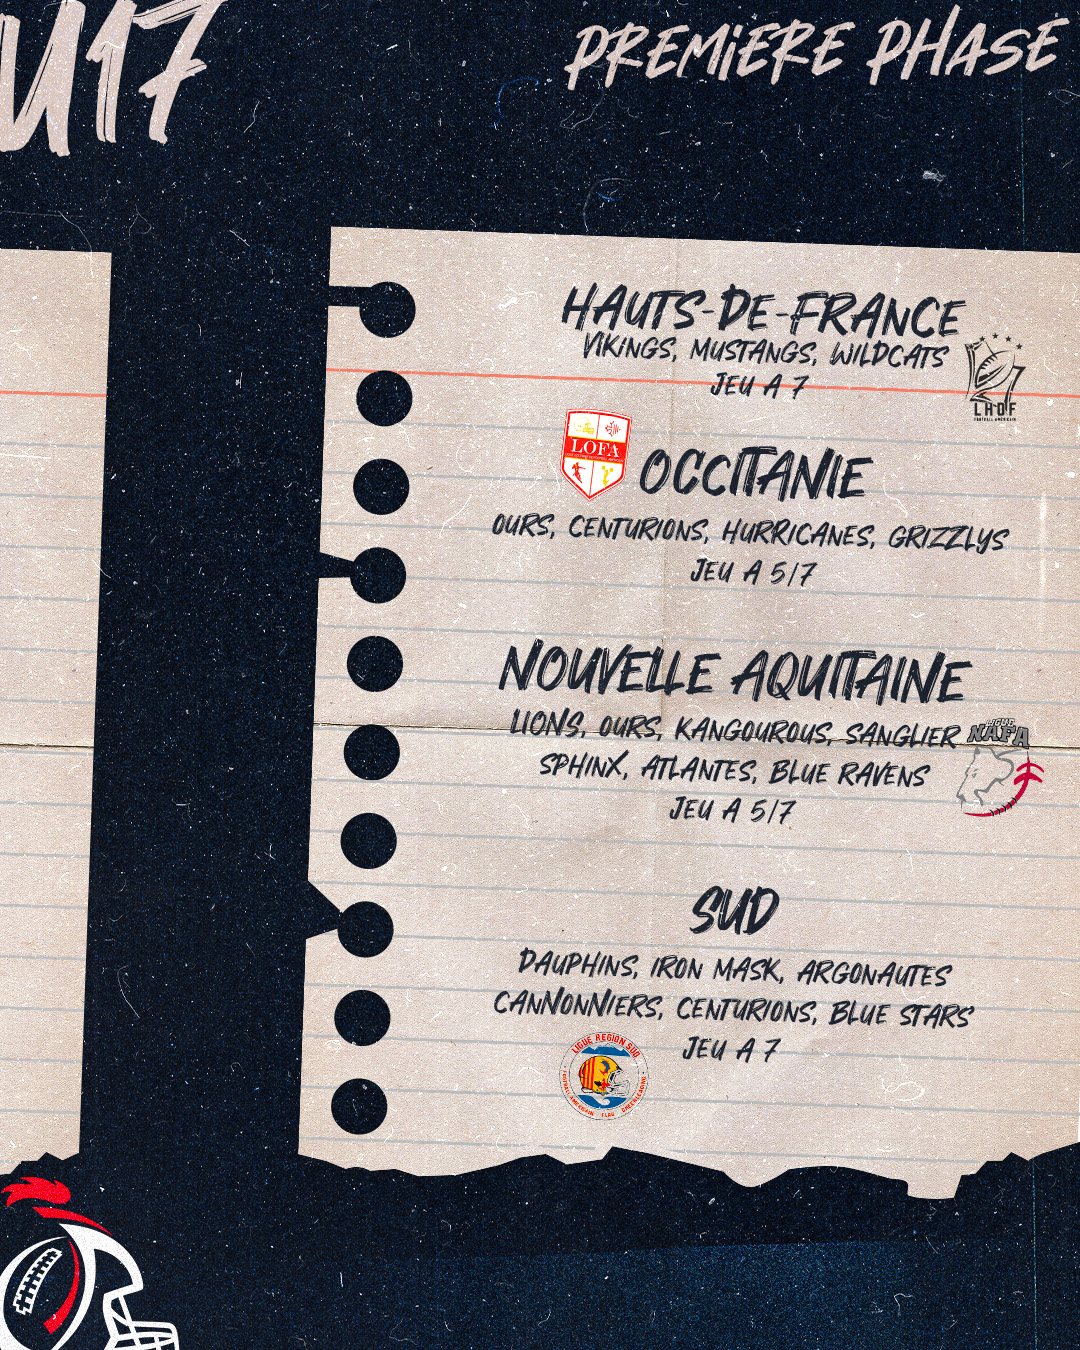 U17
PREMIERE PHASE
HAUTS-DE-FRANCE
VIKINGS, MUSTANGS, WILDCATS
JEU A 7
LHDF
FOOTBALL AMERICAIN
LOFA
OCCITANIE
OURS, CENTURIONS, HURRICANES, GRIZZLYS
JEU A 5/7
NOUVELLE AQUITAINE
LIONS, OURS, KANGOUROUS, SANGLIER
LIGUE
NAFA
SPHINX, ATLANTES, BLUE RAVENS
JEU A 5/7
SUD
DAUPHINS, IRON MASK, ARGONAUTES
CANNONNIERS, CENTURIONS, BLUE STARS
JEU A 7
LIGUE REGION SUD
FOOTBALL AMERICAIN - FLAG - CHEERLEADING